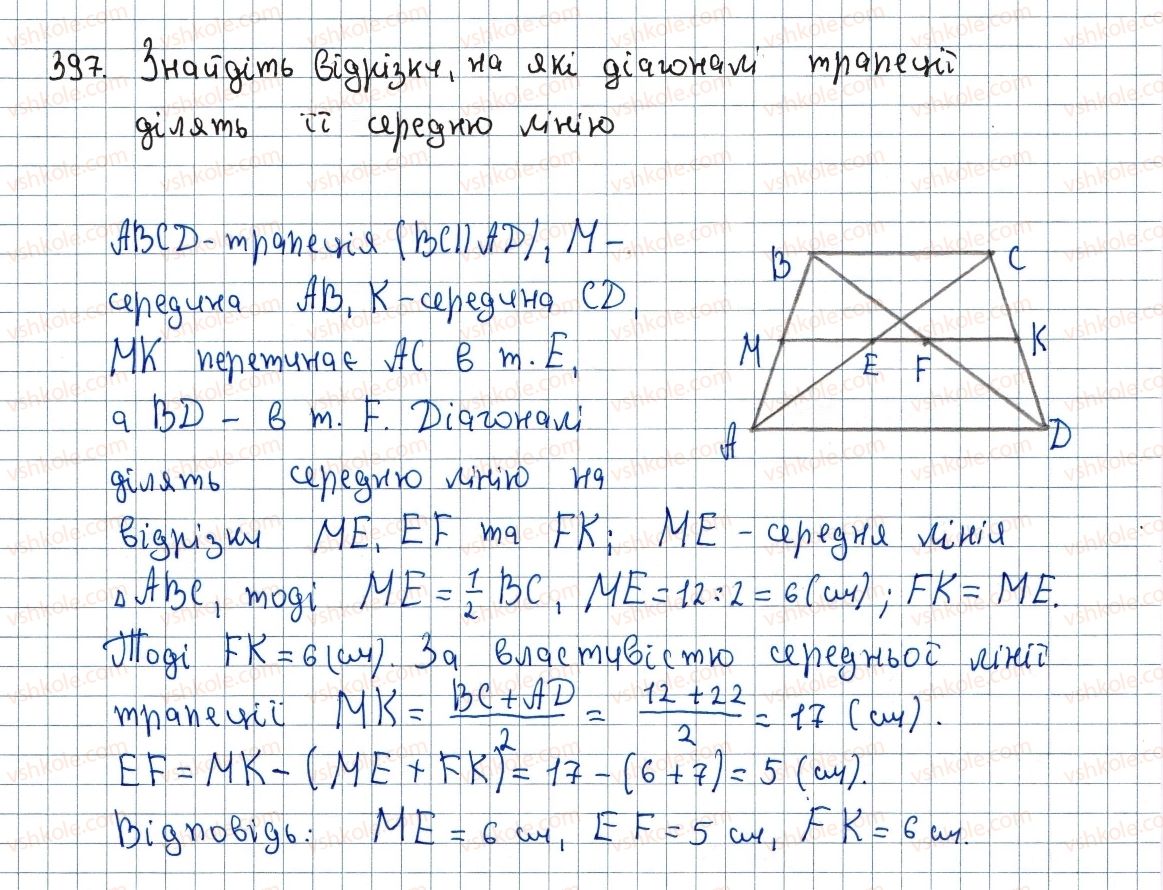 397. Знайдіть відрізки, на які діагоналі трапеції
ділять її середню лінію
ABCD - трапеція (BC||AD), M -
середина AB, K - середина CD,
MK перетинає AC в т. E,
а BD - в т. F. Діагоналі
ділять середню лінію на
відрізки ME, EF та FK; ME - середня лінія
△ABC, тоді ME = 1/2 BC, ME = 12 : 2 = 6 (см); FK = ME.
Тоді FK = 6 (см). За властивістю середньої лінії
трапеції MK = (BC + AD)/2 = (12 + 22)/2 = 17 (см).
EF = MK - (ME + FK) = 17 - (6 + 7) = 5 (см).
Відповідь: ME = 6 см, EF = 5 см, FK = 6 см.
B C
M E F K
A D
vshkole.com